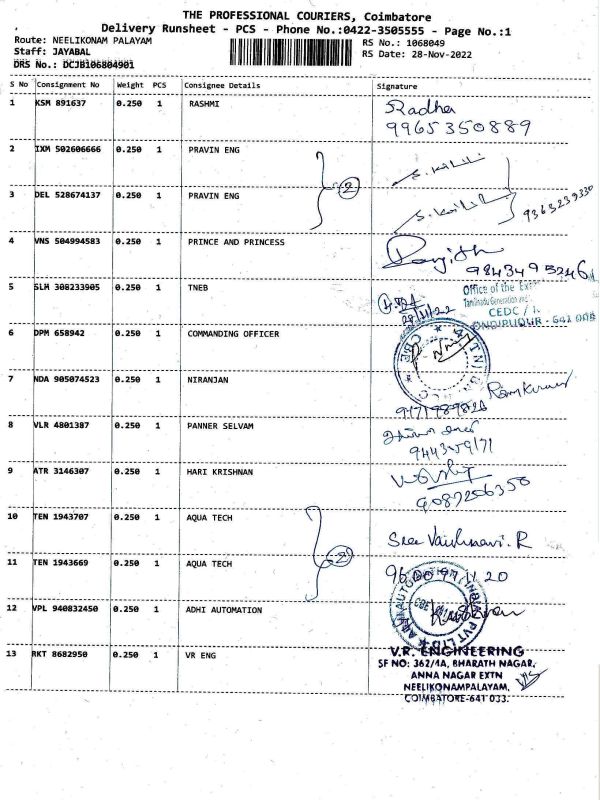 THE PROFESSIONAL COURIERS, Coimbatore
Delivery Runsheet - PCS - Phone No.:0422-3505555 - Page No.:1
Route: NEELIKONAM PALAYAM
RS No.: 1068049
Staff: JAYABAL
RS Date: 28-Nov-2022
DRS No.: DCJB106804901
S No Consignment No Weight PCS Consignee Details Signature
1 KSM 891637 0.250 1 RASHMI Radha
9965350889
2 IXM 502606666 0.250 1 PRAVIN ENG
2
3 DEL 528674137 0.250 1 PRAVIN ENG
9363239330
4 VNS 504994583 0.250 1 PRINCE AND PRINCESS Ranjith
9843495246
5 SLM 308233905 0.250 1 TNEB
Office of the
Tamilnadu Generation and
CEDC /
28/11/22
6 DPM 658942 0.250 1 COMMANDING OFFICER
7 NDA 905074523 0.250 1 NIRANJAN Ramkumar
8 VLR 4801387 0.250 1 PANNER SELVAM
9 ATR 3146307 0.250 1 HARI KRISHNAN
9087206350
10 TEN 1943707 0.250 1 AQUA TECH
Sree Vaishnavi.R
2
11 TEN 1943669 0.250 1 AQUA TECH
12 VPL 940832450 0.250 1 ADHI AUTOMATION
13 RKT 8682950 0.250 1 VR ENG
V.R. ENGINEERING
SF NO: 362/4A, BHARATH NAGAR,
ANNA NAGAR EXTN
NEELIKONAMPALAYAM,
COIMBATORE-641 033.